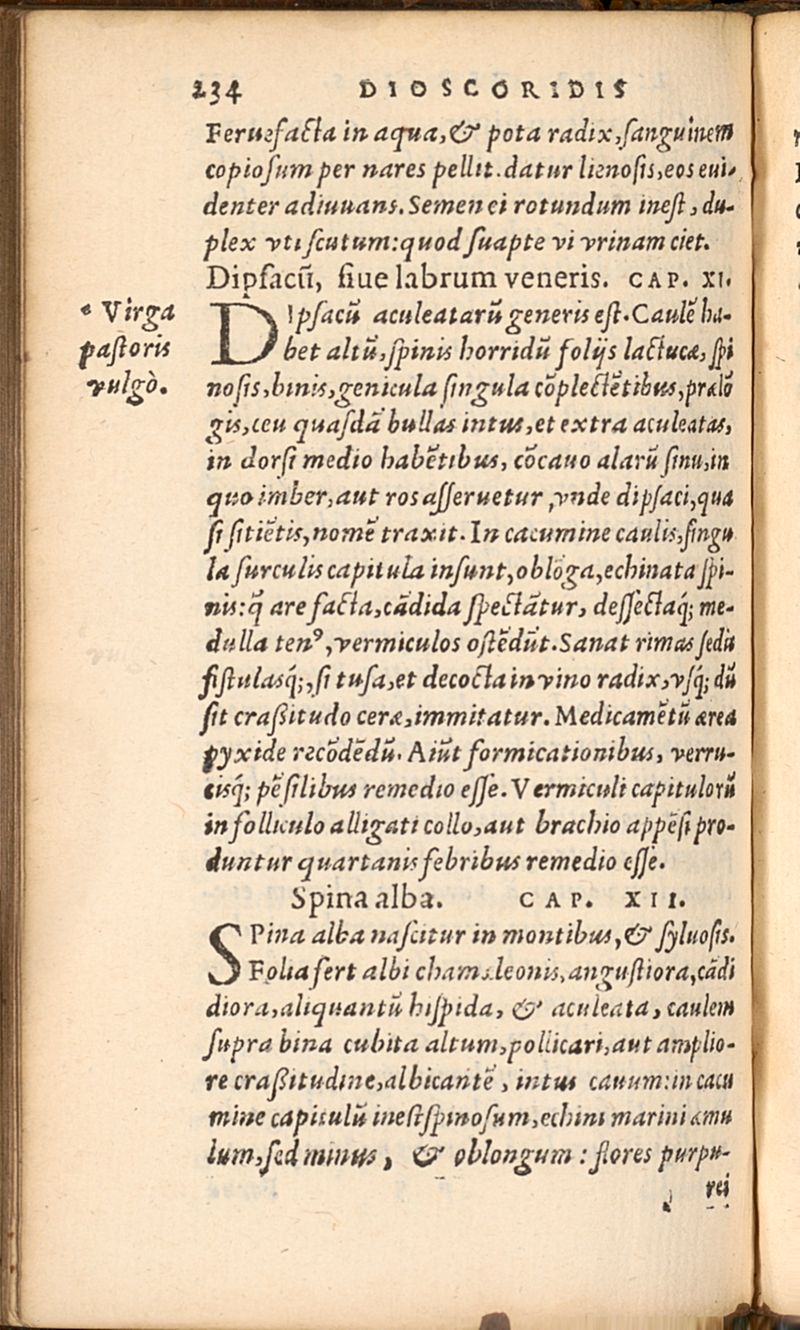 234 DIOSCORIDIS
Feruefacta in aqua, & pota radix, sanguinem
copiosum per nares pellit. datur lienosis, eos eui-
denter adiuuans. Semen ei rotundum inest, du-
plex vti scutum: quod suapte vi vrinam ciet.
Dipsacũ, siue labrum veneris. CAP. XI.
* Virga
pastoris
vulgò.
DIpsacũ aculeatarũ generis est. Caulẽ ha-
bet altũ, spinis horridũ folijs lactucæ, spi
nosis, binis, genicula singula cõplectẽtibus, prælõ
gis, ceu quasdã bullas intus, et extra aculeatas,
in dorsi medio habẽtibus, cõcauo alarũ sinu, in
quo imber, aut ros asseruetur, vnde dipsaci, qua
si sitiẽtis, nomẽ traxit. In cacumine caulis, singu
la surculis capitula insunt, oblõga, echinata spi-
nis: q̃ arefacta, cãdida spectãtur, dessectaq́; me-
dulla tenꝰ, vermiculos ostẽdũt. Sanat rimas sedis
fistulasq́;, si tusa, et decocta in vino radix, vsq́; dũ
sit craßitudo ceræ, immitatur. Medicamẽtũ ærea
pyxide recõdẽdũ. Aiũt formicationibus, verru-
cisq́; pẽsilibus remedio esse. Vermiculi capitulorũ
in folliculo alligati collo, aut brachio appẽsi pro-
duntur quartanis febribus remedio esse.
Spina alba. CAP. XII.
SPina alba nascitur in montibus, & syluosis.
Folia fert albi chamæleonis, angustiora, cãdi
diora, aliquantũ hispida, & aculeata, caulem
supra bina cubita altum, pollicari, aut amplio-
re craßitudine, albicantẽ, intus cauum: in cacu
mine capitulũ inest spinosum, echini marini æmu
lum, sed minus, & oblongum: flores purpu-
rei